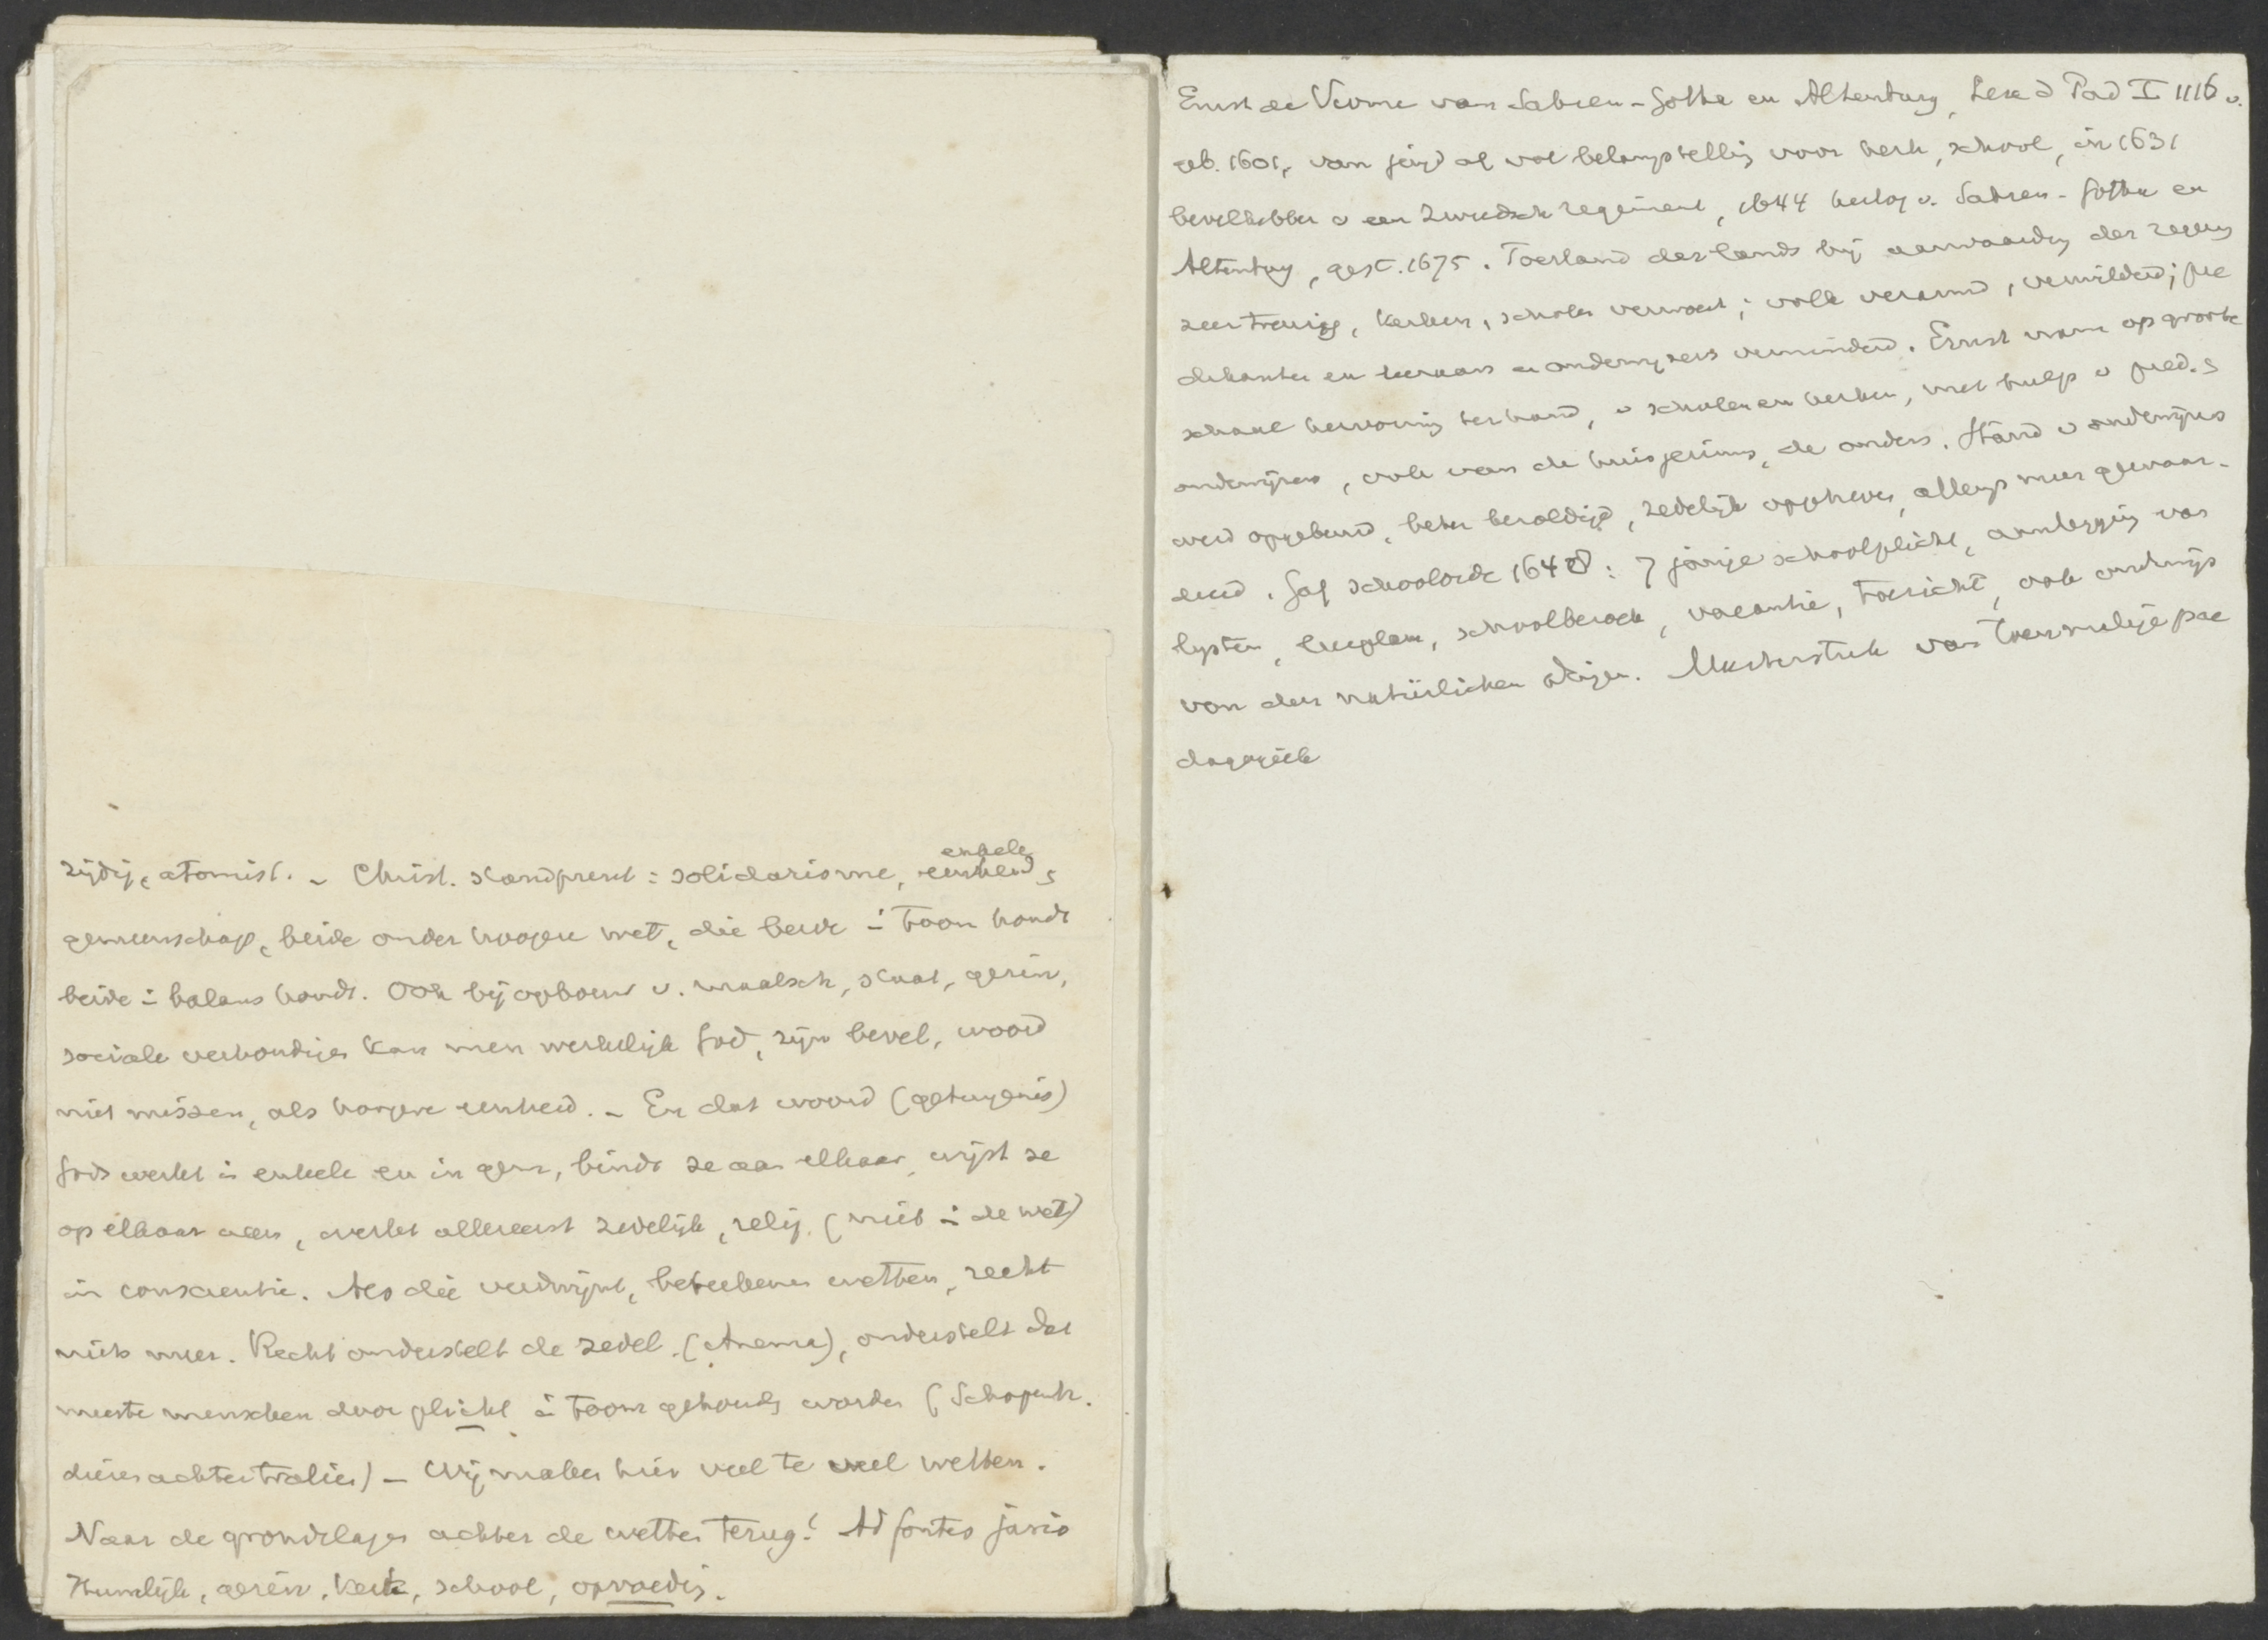 zijdig, atomist. – Christ. standpunt: solidarisme, enkele
eenheid,
gemeenschap, beide onder hoogere wet, die beide i toom houdt
beide i balans houdt. Ook bij opbouw v. maatsch, staat, gezin,
sociale verhoudingen kan men werkelijk God, zijn bevel, woord
niet missen, als hoogere eenheid. – En dat woord (getuigenis)
Gods werkt in enkele en in gem, bindt ze aan elkaar, wijst ze
op elkaar aan, werkt allereerst zedelijk, relig. (niet i de wet)
in conscientie. Als die verdwijnt, beteekenen wetten, recht
niets meer. Recht onderstelt de zedel. (Anema), onderstelt dat
meeste menschen door plicht i toom gehouden worden (Schopenh.
dieren achter tralies) – Wij maken hier veel te veel wetten.
Naar de grondslagen achter de wetten terug! Ad fontes juris
Huwelijk, gezin, kerk, school, opvoeding.
Ernst de Vrome van Saksen-Gotha en Altenburg, I 1116 v.
geb. 1601, van jongs af vol belangstelling voor kerk, school, in 1631
bevelhebber v een Zweedsch regiment, 1644 hertog v. Saksen-Gotha en
Altenburg, gest. 1675. Toestand des lands bij aanvaarding der regering
zeer treurig, kerken, scholen verwoest; volk verarmd, verwilderd; pre
dikanten en leeraars en onderwijzers verminderd. Ernst nam op groote
schaal hervorming ter hand, v scholen en kerken, met hulp v pred. &
onderwijzers, ook van de huisgezinnen, de ouders. Stand v onderwijzers
werd opgebeurd, beter bezoldigd, zedelijk opgeheven, allengs meer gewaar-
deerd. Gaf schoolorde 1648: 7 jarige schoolplicht, aanlegging van
lijsten, leerplan, schoolbezoek, vacantie, toezicht, ook onderwijs
von den natürlichen dingen. Meesterstuk van toenmalige pae
dagogiek